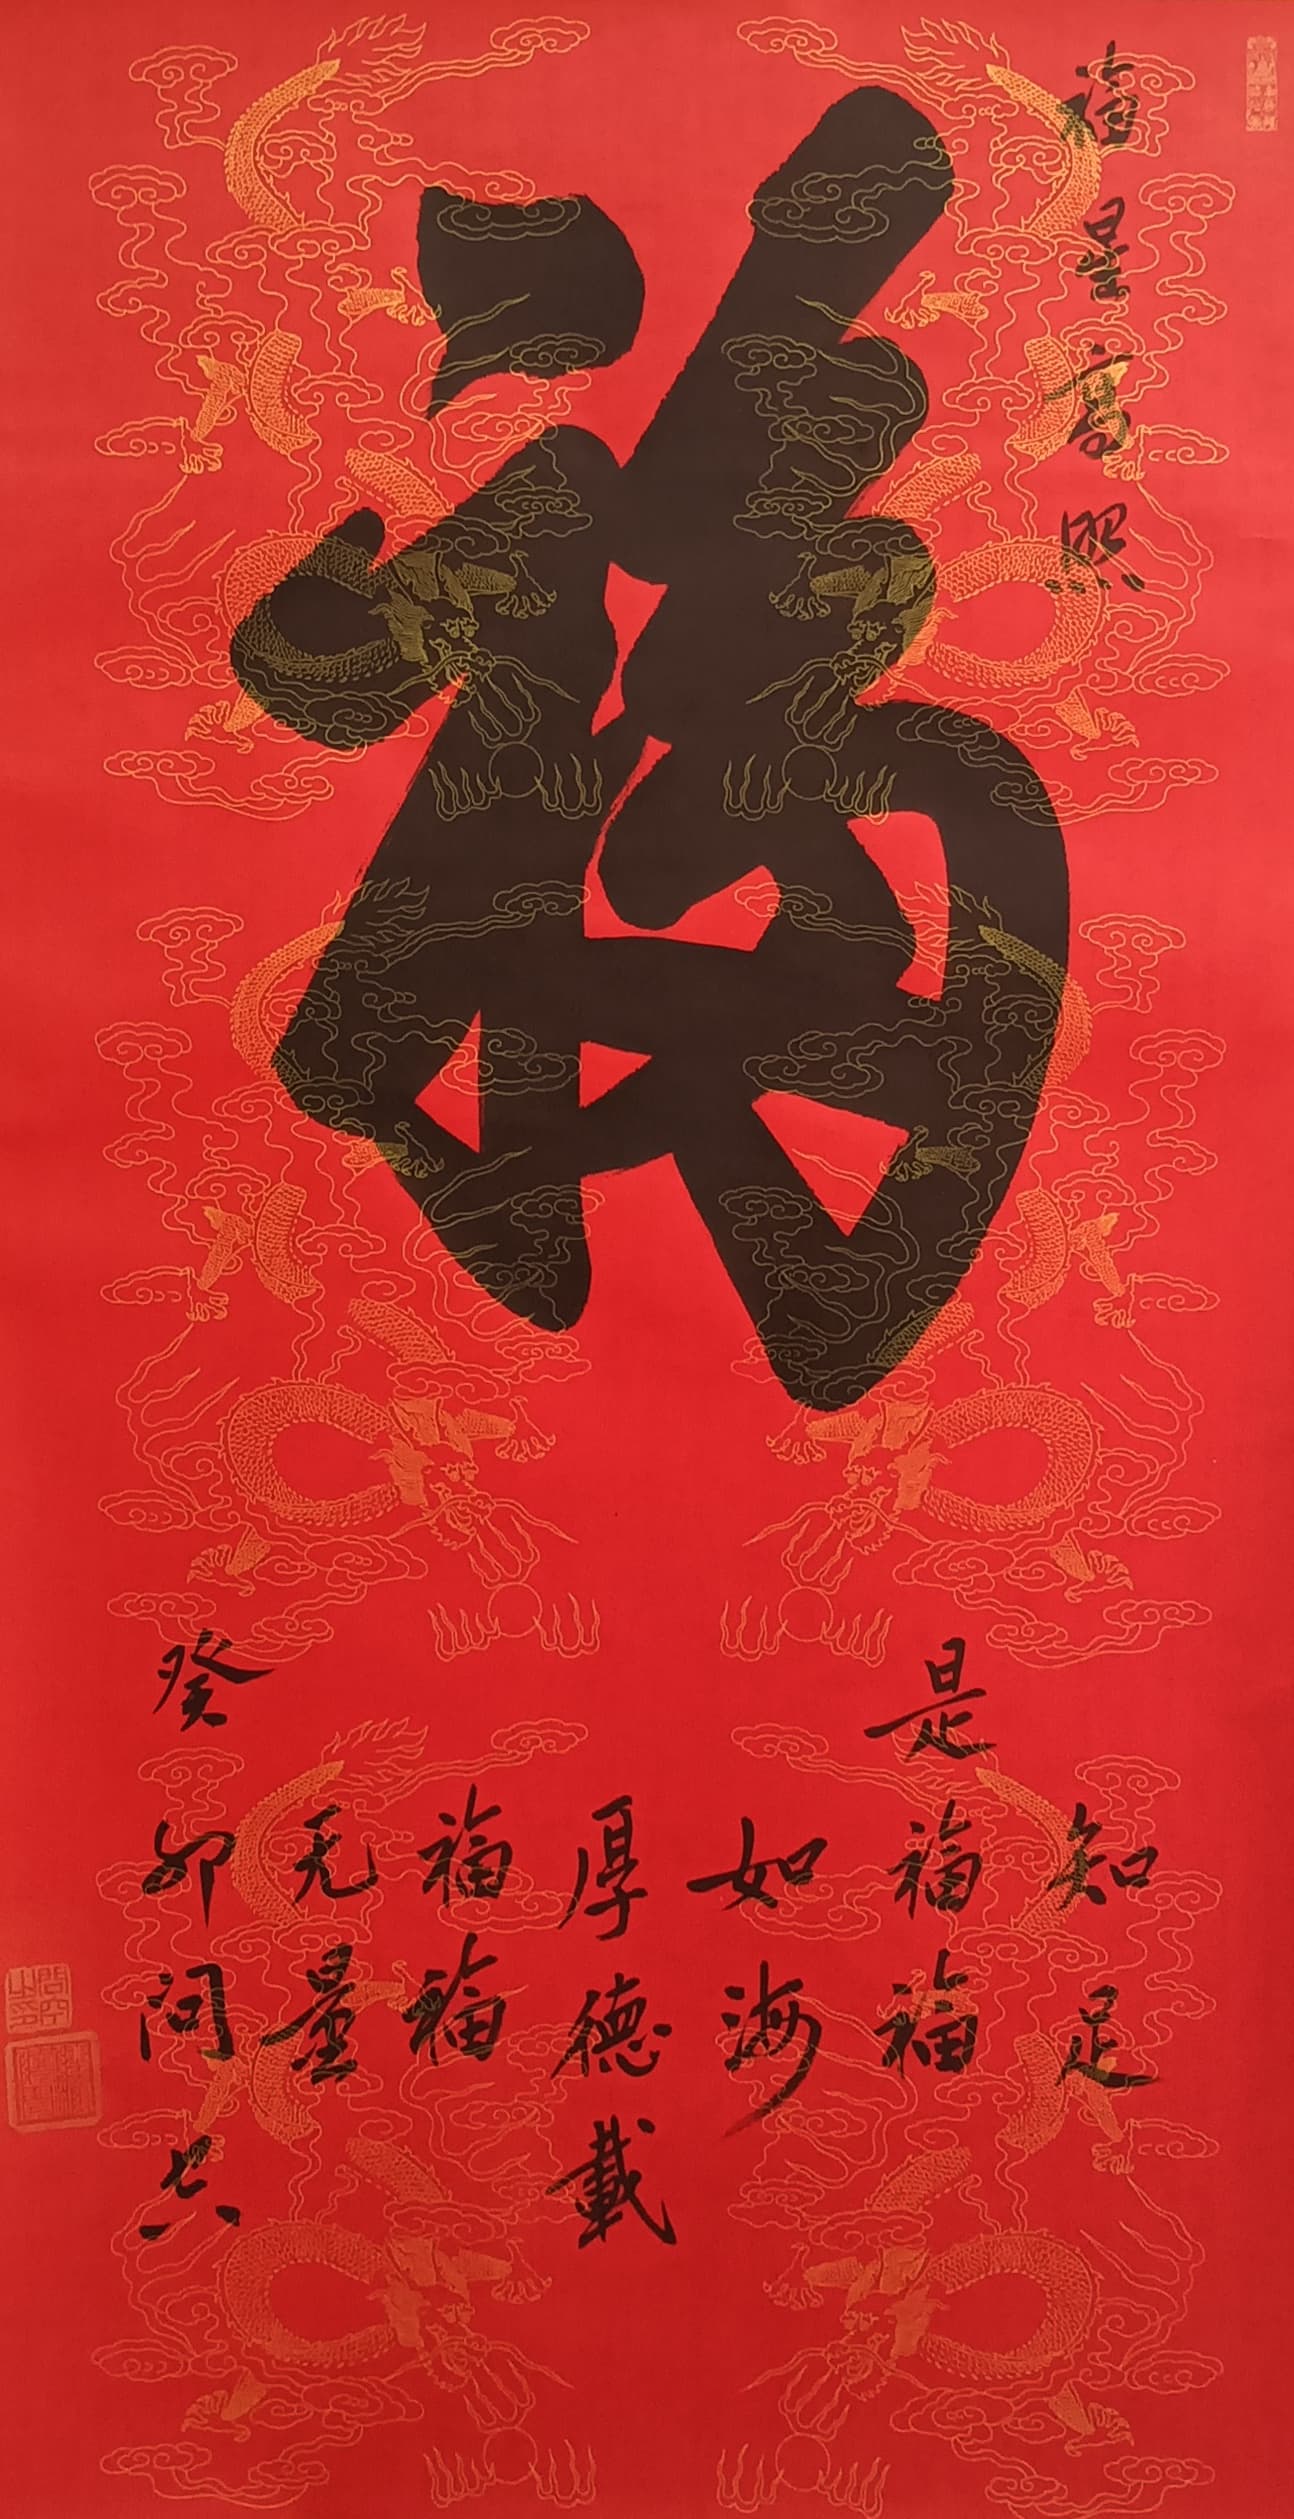 福
福星高照
知足
是福福
如海
厚德載
福福
无量
癸卯问